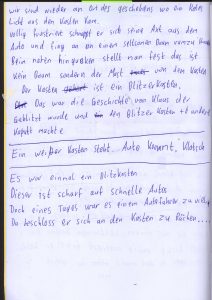 wir sind wieder am Ort des geschehens wo ein Rotes
Licht aus den Kasten kam.
Völlig frustriert schnappt er sich seine Axt aus dem
Auto und fing an an einem seltsamen Baum
Beim nähren hingucken stellt man fest das ist
kein Baum sondern der Mast von dem Kasten.
Der Kasten ist ein Blitzerkasten,
Das war die Geschichte von Klaus der
Geblitzt wurde und den Blitzer Kasten
kaputt machte
Ein weißer Kasten steht... Auto kommt, Klatsch
Es war einmal ein Blitzkasten
Dieser ist scharf auf schnelle Autos
Doch eines Tages war es einem Autofahrer zu viel,
Da beschloss er sich an den Kasten zu Rächen....